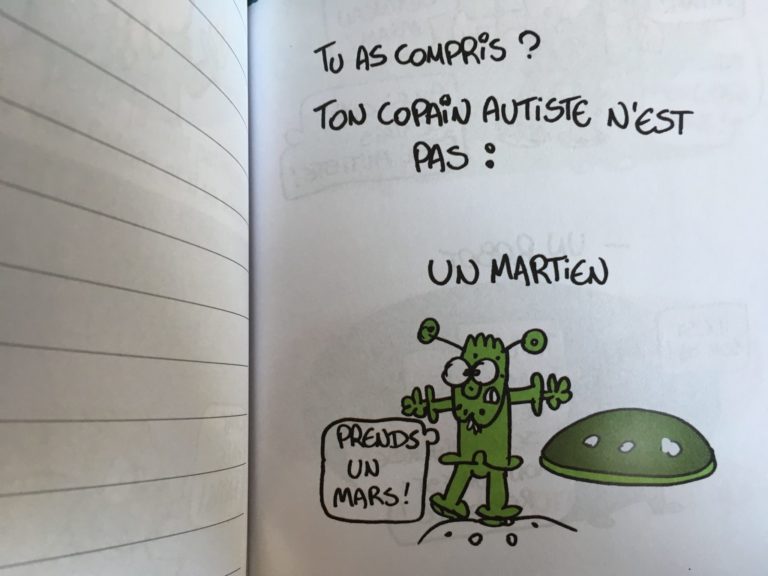 TU AS COMPRIS ?
TON COPAIN AUTISTE N'EST
PAS :
UN MARTIEN
PRENDS
UN
MARS !